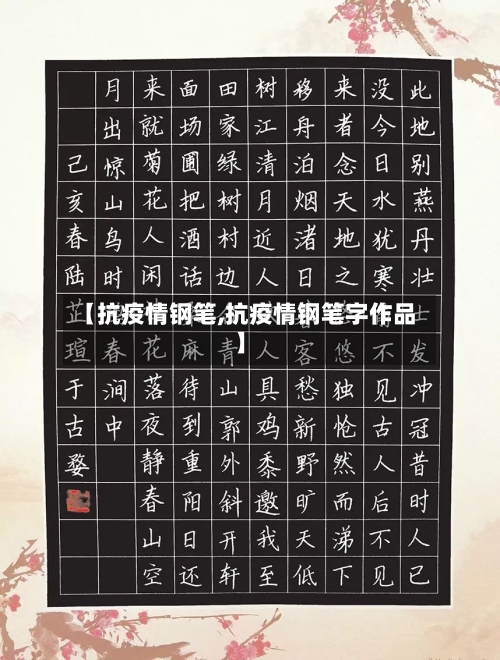 此地别燕丹壮士发冲冠昔时人已
没今日水犹寒不见古人后不见
来者念天地之悠独怆然而涕下
移舟泊烟渚日客愁新野旷天低
树江清月近人人具鸡黍邀我至
田家绿树村边青山郭外斜开轩
面场圃把酒话麻待到重阳日还
来就菊花人闲花落夜静春山空
月出惊山鸟时春涧中
己亥春陆芷瑄于古婺
【抗疫情钢笔,抗疫情钢笔字作品
】